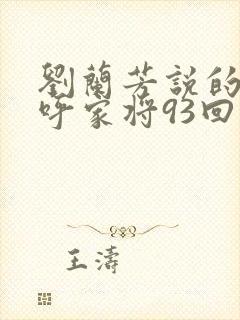 劉蘭芳説的
呼家将93回
王濤